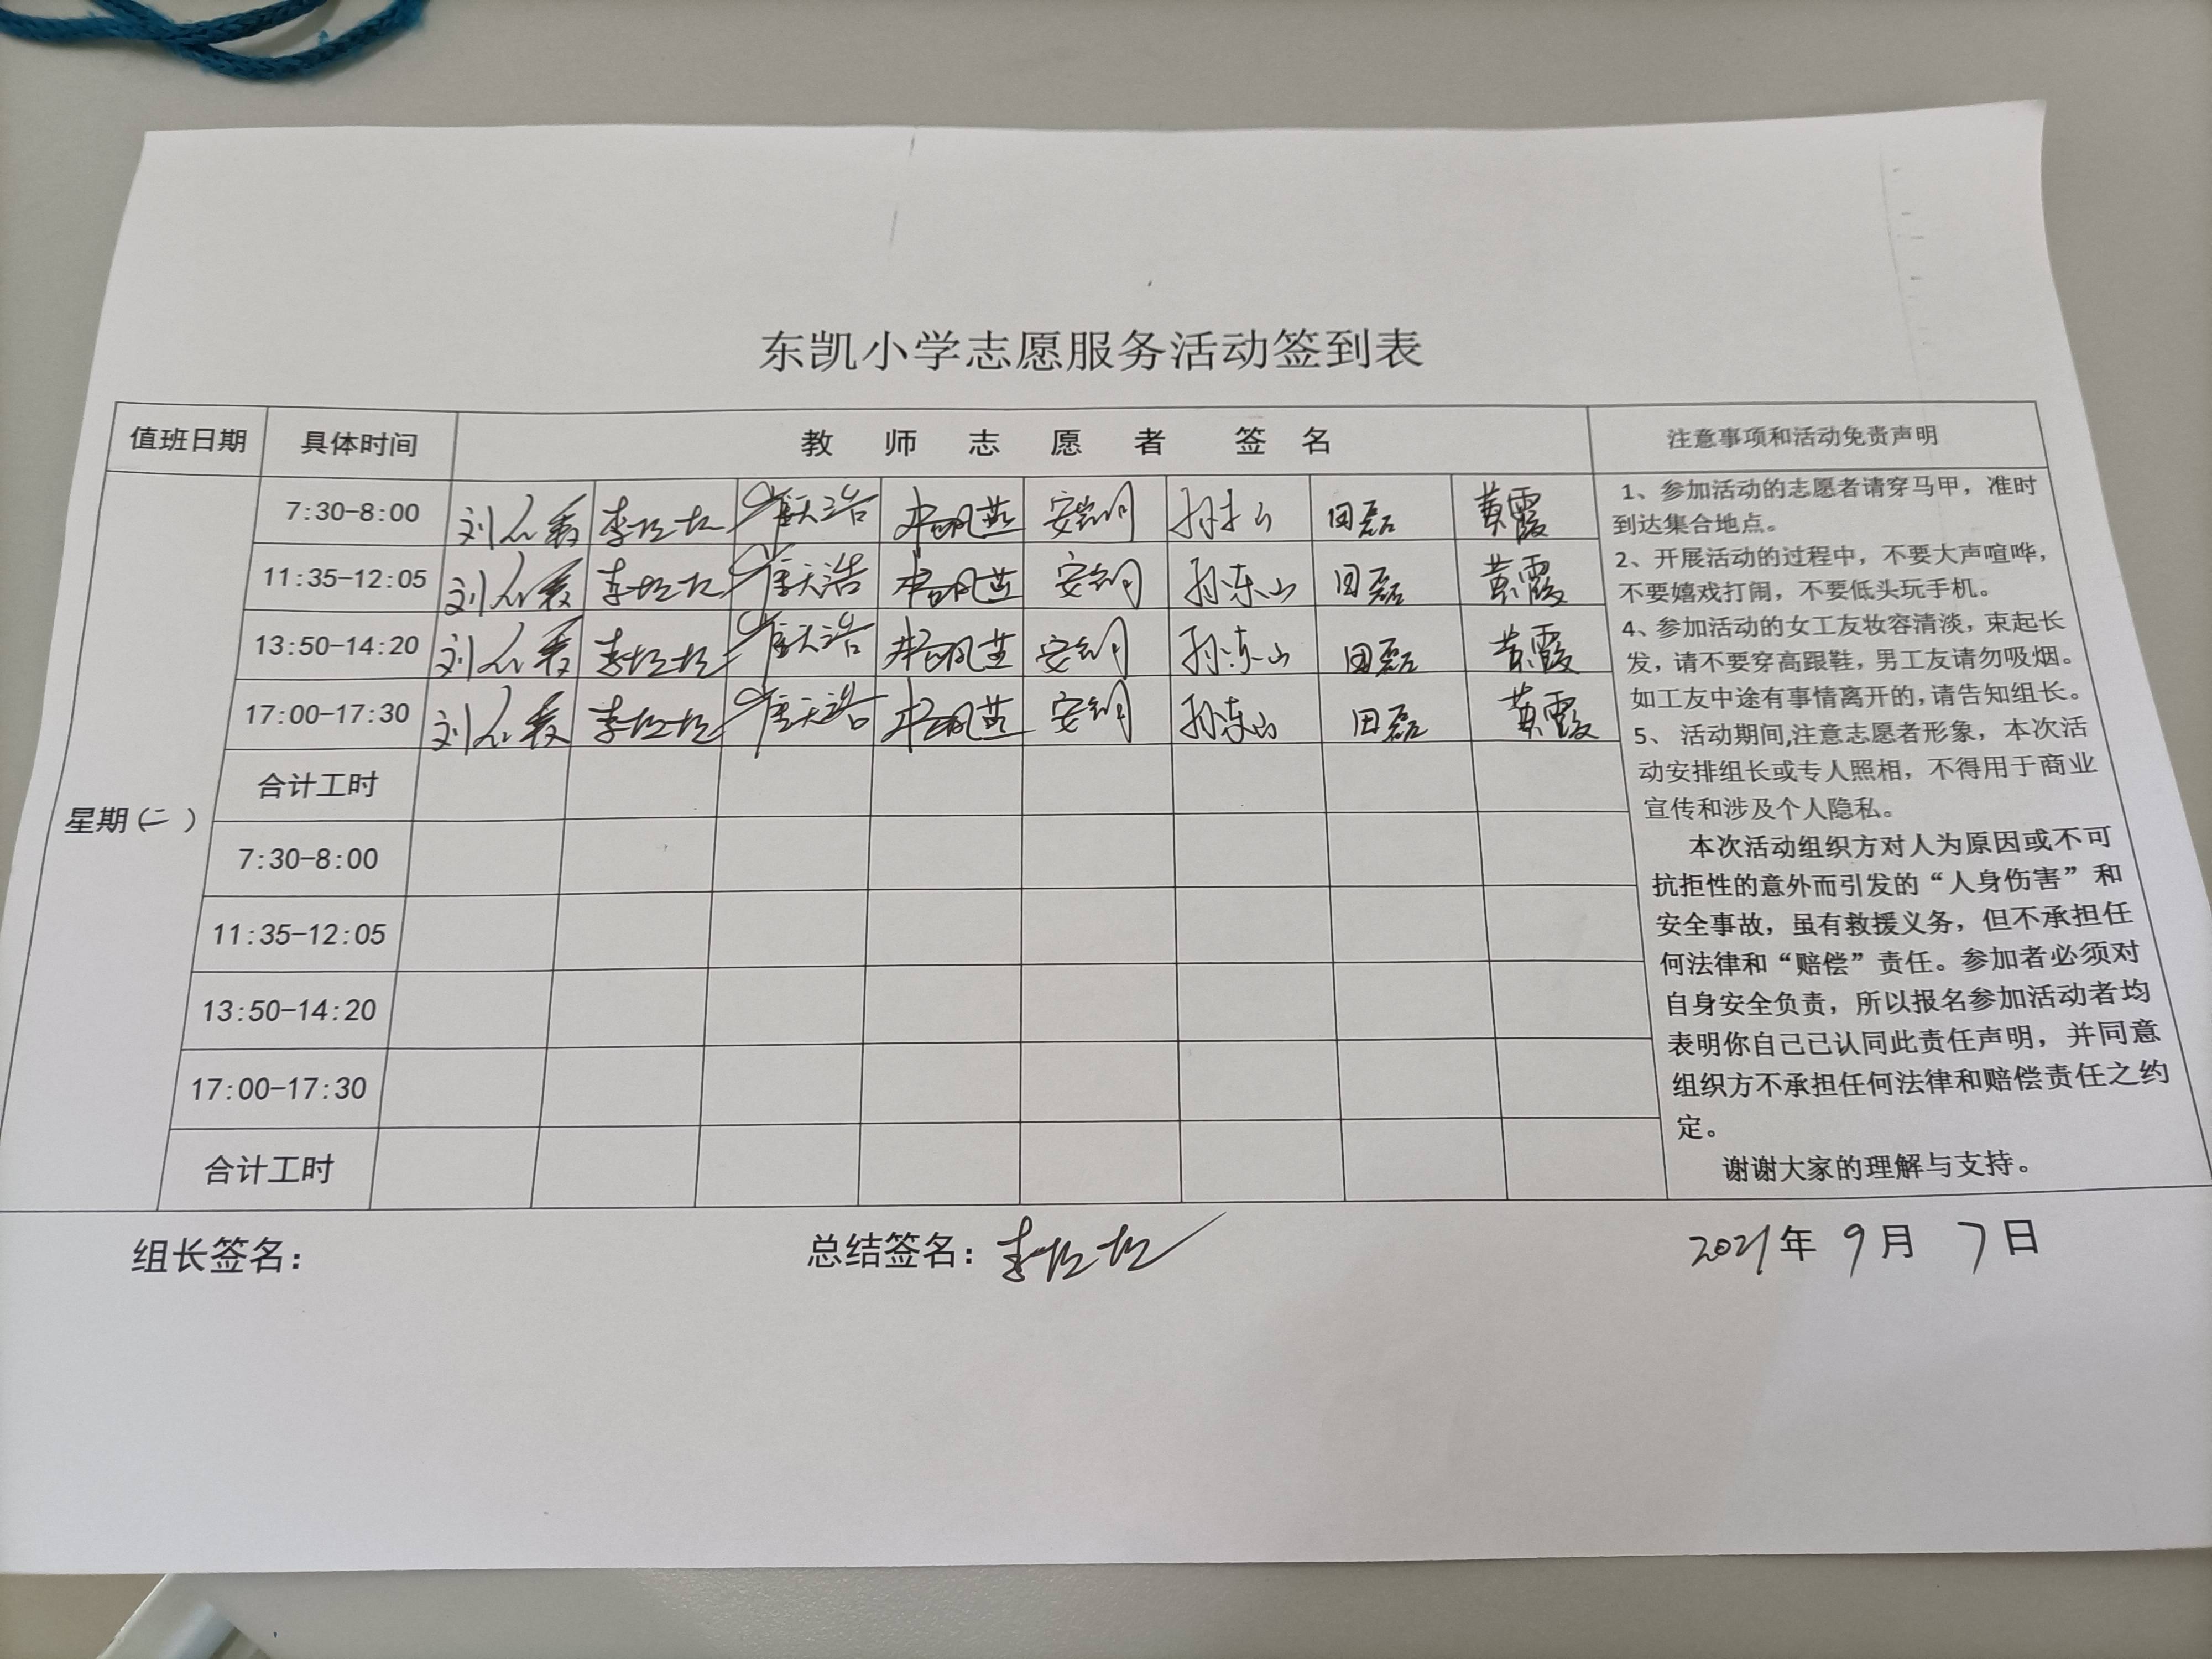 东凯小学志愿服务活动签到表
值班日期 具体时间 教师志愿者签名 注意事项和活动免责声明
星期(二)
7:30-8:00 田磊 黄霞
11:35-12:05 孙东山 田磊 黄霞
13:50-14:20 孙东山 田磊 黄霞
17:00-17:30 孙东山 田磊 黄霞
合计工时
7:30-8:00
11:35-12:05
13:50-14:20
17:00-17:30
合计工时
1、参加活动的志愿者请穿马甲，准时
到达集合地点。
2、开展活动的过程中，不要大声喧哗，
不要嬉戏打闹，不要低头玩手机。
4、参加活动的女工友妆容清淡，束起长
发，请不要穿高跟鞋，男工友请勿吸烟。
如工友中途有事情离开的,请告知组长。
5、 活动期间,注意志愿者形象，本次活
动安排组长或专人照相，不得用于商业
宣传和涉及个人隐私。
本次活动组织方对人为原因或不可
抗拒性的意外而引发的“人身伤害”和
安全事故，虽有救援义务，但不承担任
何法律和“赔偿”责任。参加者必须对
自身安全负责，所以报名参加活动者均
表明你自己已认同此责任声明，并同意
组织方不承担任何法律和赔偿责任之约
定。
谢谢大家的理解与支持。
组长签名： 总结签名： 2021年 9月 7日